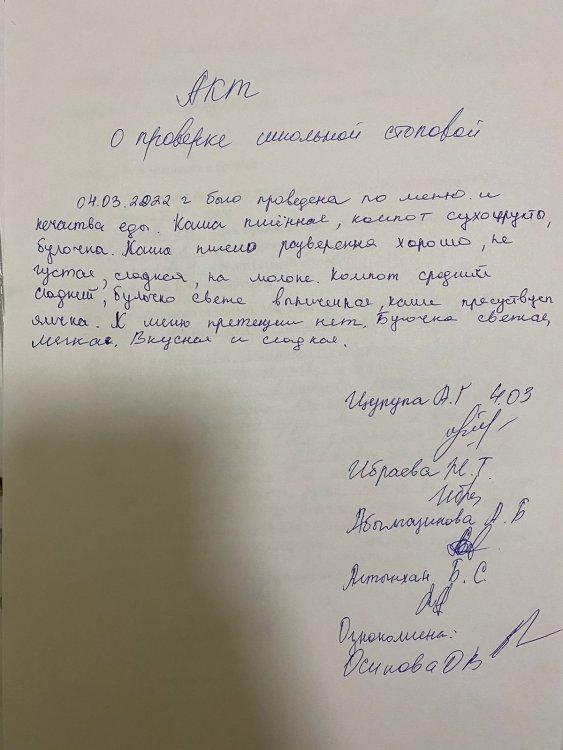 Акт
О проверке школьной столовой
04.03.2022 г было проведена по меню и
качества еды. Каша пшённая, компот сухофрукты,
булочка. Каша пшено разваренна хорошо, не
густая, сладкая, на молоке. Компот средний
сладкий, булочка свеже выпиченная, каши
ямчка. К меню претензии нет. Булочка свежая,
мягкая. Вкусная и сладкая.
Цурупа А.Г 4.03
Ибраева М.Т.
Абылгазинова А.Б
Алтынхан Б.С.
Ознакомлена:
Осипова О В